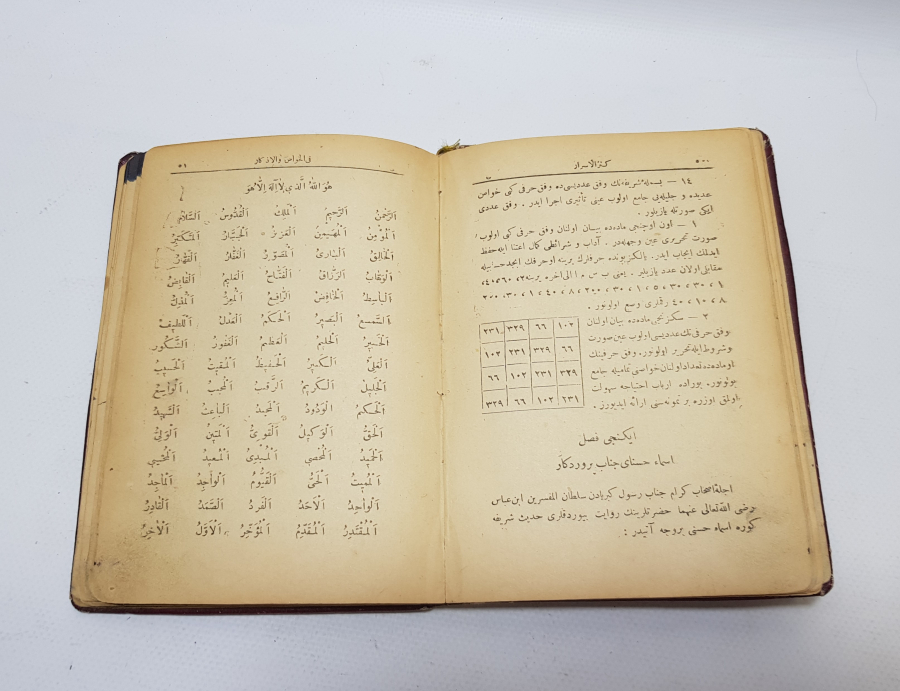 كنز الاسرار
١٤ — بسمله شريفه نك وفق عدديسى ده وفق حرفى كبى خواص
عديده و جليله يى جامع اولوب عينى تأثيرى اجرا ايدر . وفق عددى
ايكى صورتله يازيلور .
١ — اون اوچنجى ماده ده بيان اولنان وفق حرفى كبى اولوب
صورت تحريرى عين وجهله در . آداب و شرائطى كمال اعتنا ايله حفظ
ايدلمك ايجاب ايدر . يالكز بونده حرفلرك يرينه او حرفك ابجد حسابيله
مقابلى اولان عدد يازيلير . يعنى ب س م الى آخره يرينه ٢، ٦٠، ٤٠،
١، ٣٠، ٣٠، ٥، ١، ٣٠، ٢٠٠، ٨، ٤٠، ١، ٣٠، ٢٠٠
٨، ١٠، ٤٠ رقملرى وضع اولونور .
٢ — سكزنجى ماده ده بيان اولنان
وفق حرفى نك عدديسى عين صورت
وشروط ايله تحرير اولونور. وفق حرفينك
او ماده ده تعداد اولنان خواصنى تماميله جامع
بولونور. بوراده ارباب احتياجه سهولت
اولمق اوزره بر نمونه سنى ارائه ايديورز .
٢٣١ ٣٢٩ ٦٦ ١٠٢
١٠٢ ٢٣١ ٣٢٩ ٦٦
٦٦ ١٠٢ ٢٣١ ٣٢٩
٣٢٩ ٦٦ ١٠٢ ٢٣١
ايكنجى فصل
اسماء حسناى جناب پروردكار
اجلهٔ اصحاب كرام جناب رسول كبريادن سلطان المفسرين ابن عباس
رضى الله تعالى عنهما حضرتلرينك روايت بيوردقلرى حديث شريفه
كوره اسماء حسنى بروجه آتيدر :
فى الخواص والاذكار ٥١
هُوَ اللهُ الَّذِي لاَ اِلٰهَ اِلاَّ هُوَ
اَلرَّحْمٰنُ اَلرَّحِيمُ اَلْمَلِكُ اَلْقُدُّوسُ اَلسَّلَامُ
اَلْمُؤْمِنُ اَلْمُهَيْمِنُ اَلْعَزِيزُ اَلْجَبَّارُ اَلْمُتَكَبِّرُ
اَلْخَالِقُ اَلْبَارِئُ اَلْمُصَوِّرُ اَلْغَفَّارُ اَلْقَهَّارُ
اَلْوَهَّابُ اَلرَّزَّاقُ اَلْفَتَّاحُ اَلْعَلِيمُ اَلْقَابِضُ
اَلْبَاسِطُ اَلْخَافِضُ اَلرَّافِعُ اَلْمُعِزُّ اَلْمُذِلُّ
اَلسَّمِيعُ اَلْبَصِيرُ اَلْحَكَمُ اَلْعَدْلُ اَللَّطِيفُ
اَلْخَبِيرُ اَلْحَلِيمُ اَلْعَظِيمُ اَلْغَفُورُ اَلشَّكُورُ
اَلْعَلِيُّ اَلْكَبِيرُ اَلْحَفِيظُ اَلْمُقِيتُ اَلْحَسِيبُ
اَلْجَلِيلُ اَلْكَرِيمُ اَلرَّقِيبُ اَلْمُجِيبُ اَلْوَاسِعُ
اَلْحَكِيمُ اَلْوَدُودُ اَلْمَجِيدُ اَلْبَاعِثُ اَلشَّهِيدُ
اَلْحَقُّ اَلْوَكِيلُ اَلْقَوِيُّ اَلْمَتِينُ اَلْوَلِيُّ
اَلْحَمِيدُ اَلْمُحْصِي اَلْمُبْدِئُ اَلْمُعِيدُ اَلْمُحْيِي
اَلْمُمِيتُ اَلْحَيُّ اَلْقَيُّومُ اَلْوَاجِدُ اَلْمَاجِدُ
اَلْوَاحِدُ اَلْاَحَدُ اَلْفَرْدُ اَلصَّمَدُ اَلْقَادِرُ
اَلْمُقْتَدِرُ اَلْمُقَدِّمُ اَلْمُؤَخِّرُ اَلْاَوَّلُ اَلْاٰخِرُ